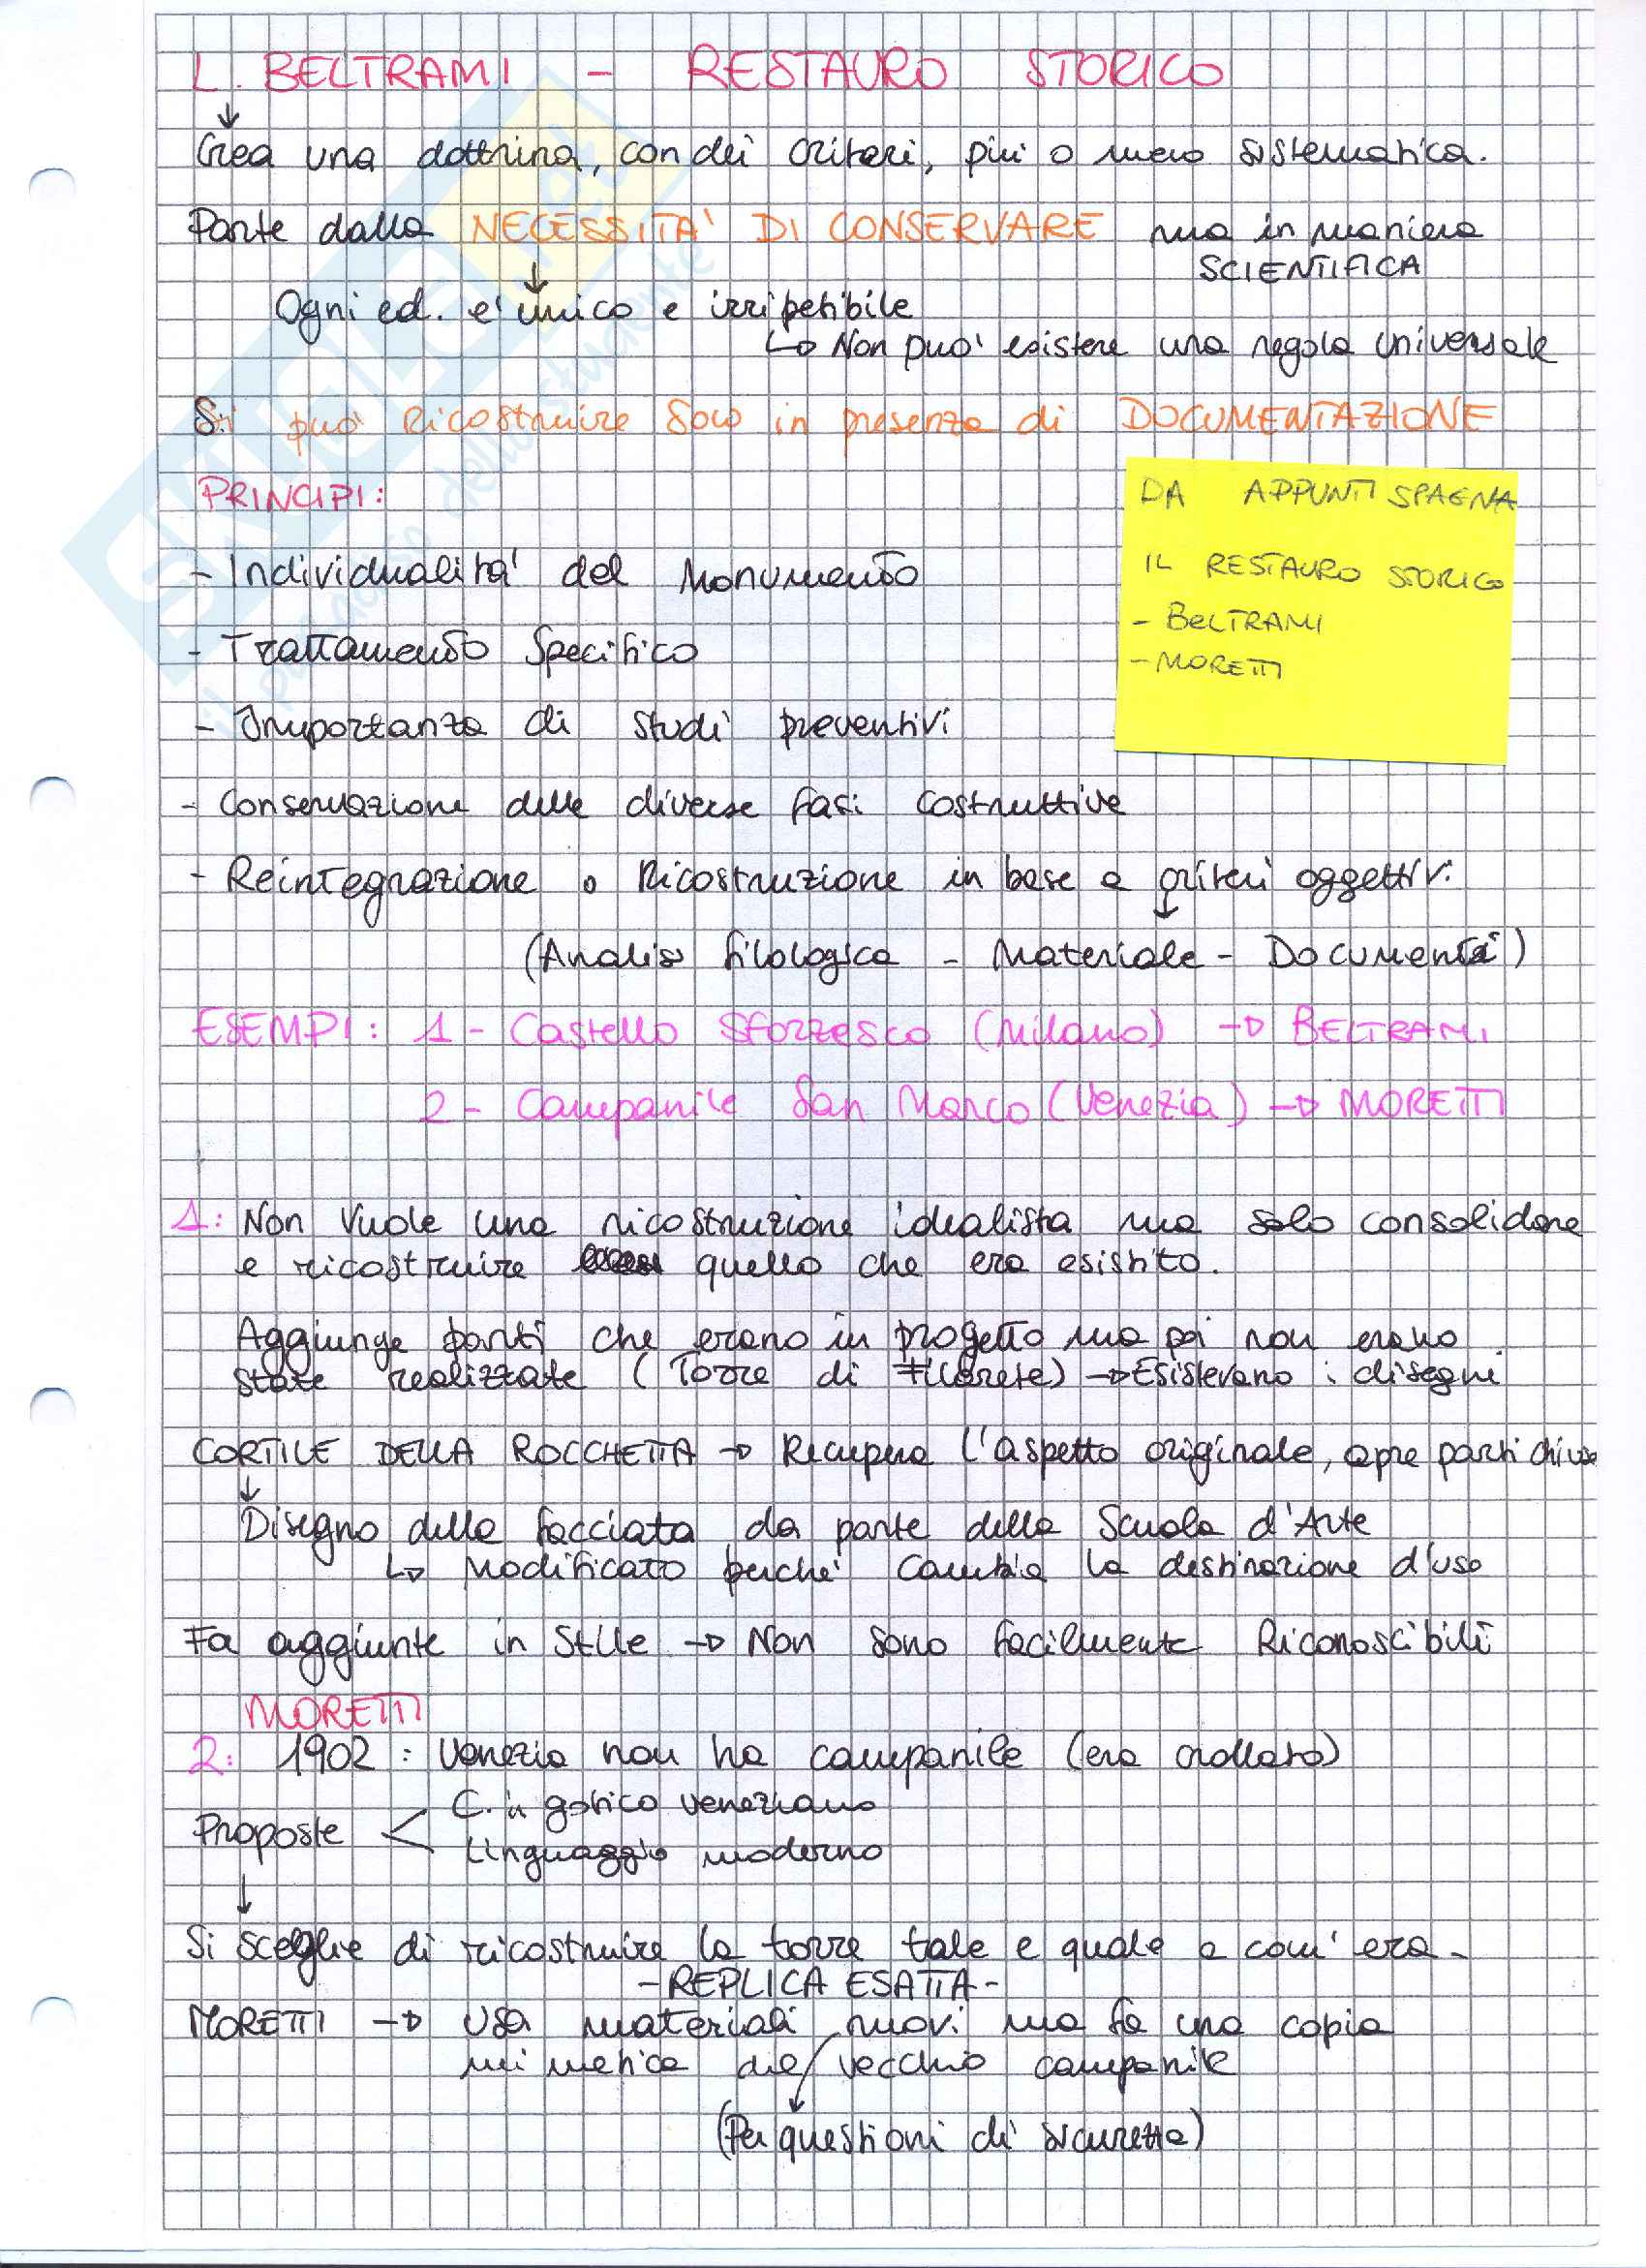 L. BELTRAMI - RESTAURO STORICO
↓
Crea una dottrina, con dei criteri, più o meno sistematica.
Parte dalla NECESSITA' DI CONSERVARE ma in maniera
SCIENTIFICA
↓
Ogni ed. e' unico e irripetibile
↳ Non puo' esistere una regola universale
Si può Ricostruire Solo in presenza di DOCUMENTAZIONE
PRINCIPI:
DA APPUNTI SPAGNA
IL RESTAURO STORICO
- BELTRAMI
- MORETTI
- Individualita' del Monumento
- Trattamento Specifico
- Importanza di studi preventivi
- Conservazione delle diverse fasi costruttive
- Reintegrazione o Ricostruzione in base a criteri oggettivi
↓
(Analisi filologica - Materiale - Documenta)
ESEMPI: 1 - Castello Sforzesco (Milano) → BELTRAMI
2 - Campanile San Marco (Venezia) → MORETTI
1: Non Vuole una ricostruzione idealista ma solo consolidare
e ricostruire quello che era esistito.
Aggiunge parti che erano in progetto ma poi non erano
state realizzate (Torre di Filarete) → Esistevano i disegni
CORTILE DELLA ROCCHETTA → Recupera l'aspetto originale, apre parti chiuse
↓
Disegno della facciata da parte della Scuola d'Arte
↳ Modificato perche' cambia la destinazione d'uso
Fa aggiunte in Stile → Non sono facilmente Riconoscibili
MORETTI
2: 1902: Venezia non ha campanile (era crollato)
Proposte < C. in gotico veneziano
Linguaggio moderno
↓
Si sceglie di ricostruire la torre tale e quale a com' era -
- REPLICA ESATTA -
MORETTI → Usa materiali nuovi ma fa una copia
mimetica del vecchio campanile
(Per questioni di sicurezza)
SKUOLA.net
il paradiso dello studente